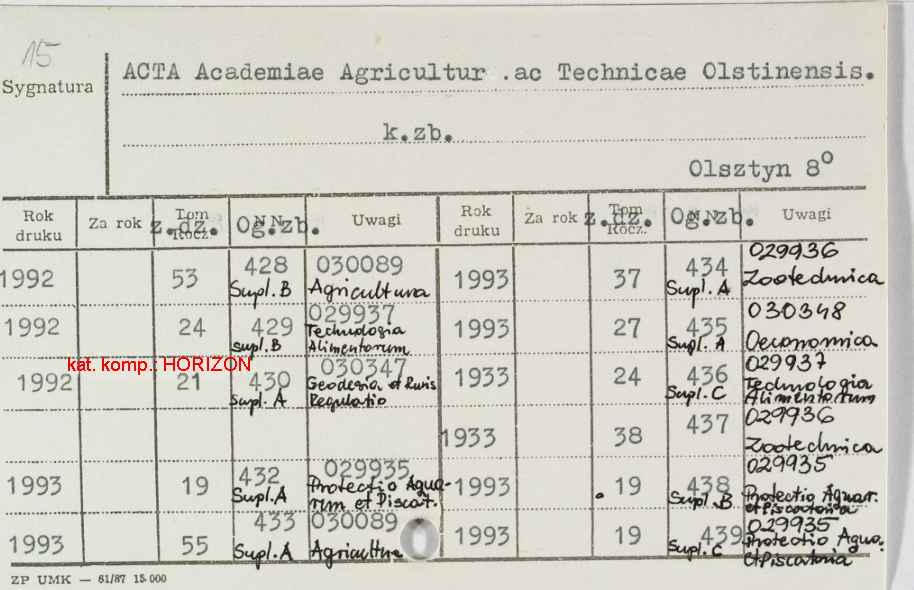 15
Sygnatura
ACTA Academiae Agricultur .ac Technicae Olstinensis.
k.zb.
Olsztyn 8o
Rok druku Za rok z.dz. Tom Rocz. Og.zb. N N Uwagi Rok druku Za rok z.dz. Tom Rocz. Og.zb. N N Uwagi
1992 53 428 Supl. B 030089 Agricultura 1993 37 434 Supl. A 029936 Zootechnica
1992 24 429 Supl. B 029937 Technologia Alimentorum 1993 27 435 Supl. A 030348 Oeconomica
kat. komp.: HORIZON
1992 21 430 Supl. A 030347 Geodesia et Ruris Regulatio 1933 24 436 Supl. C 029937 Technologia Alimentorum
1933 38 437 029936 Zootechnica
1993 19 432 Supl. A 029935 Protectio Aqua-rum et Piscat. 1993 19 438 Supl. B 029935 Protectio Aquar. et Piscatoria
1993 55 433 Supl. A 030089 Agricultura 1993 19 439 Supl. C 029935 Protectio Aqua. et Piscatoria
ZP UMK — 61/87 15 000